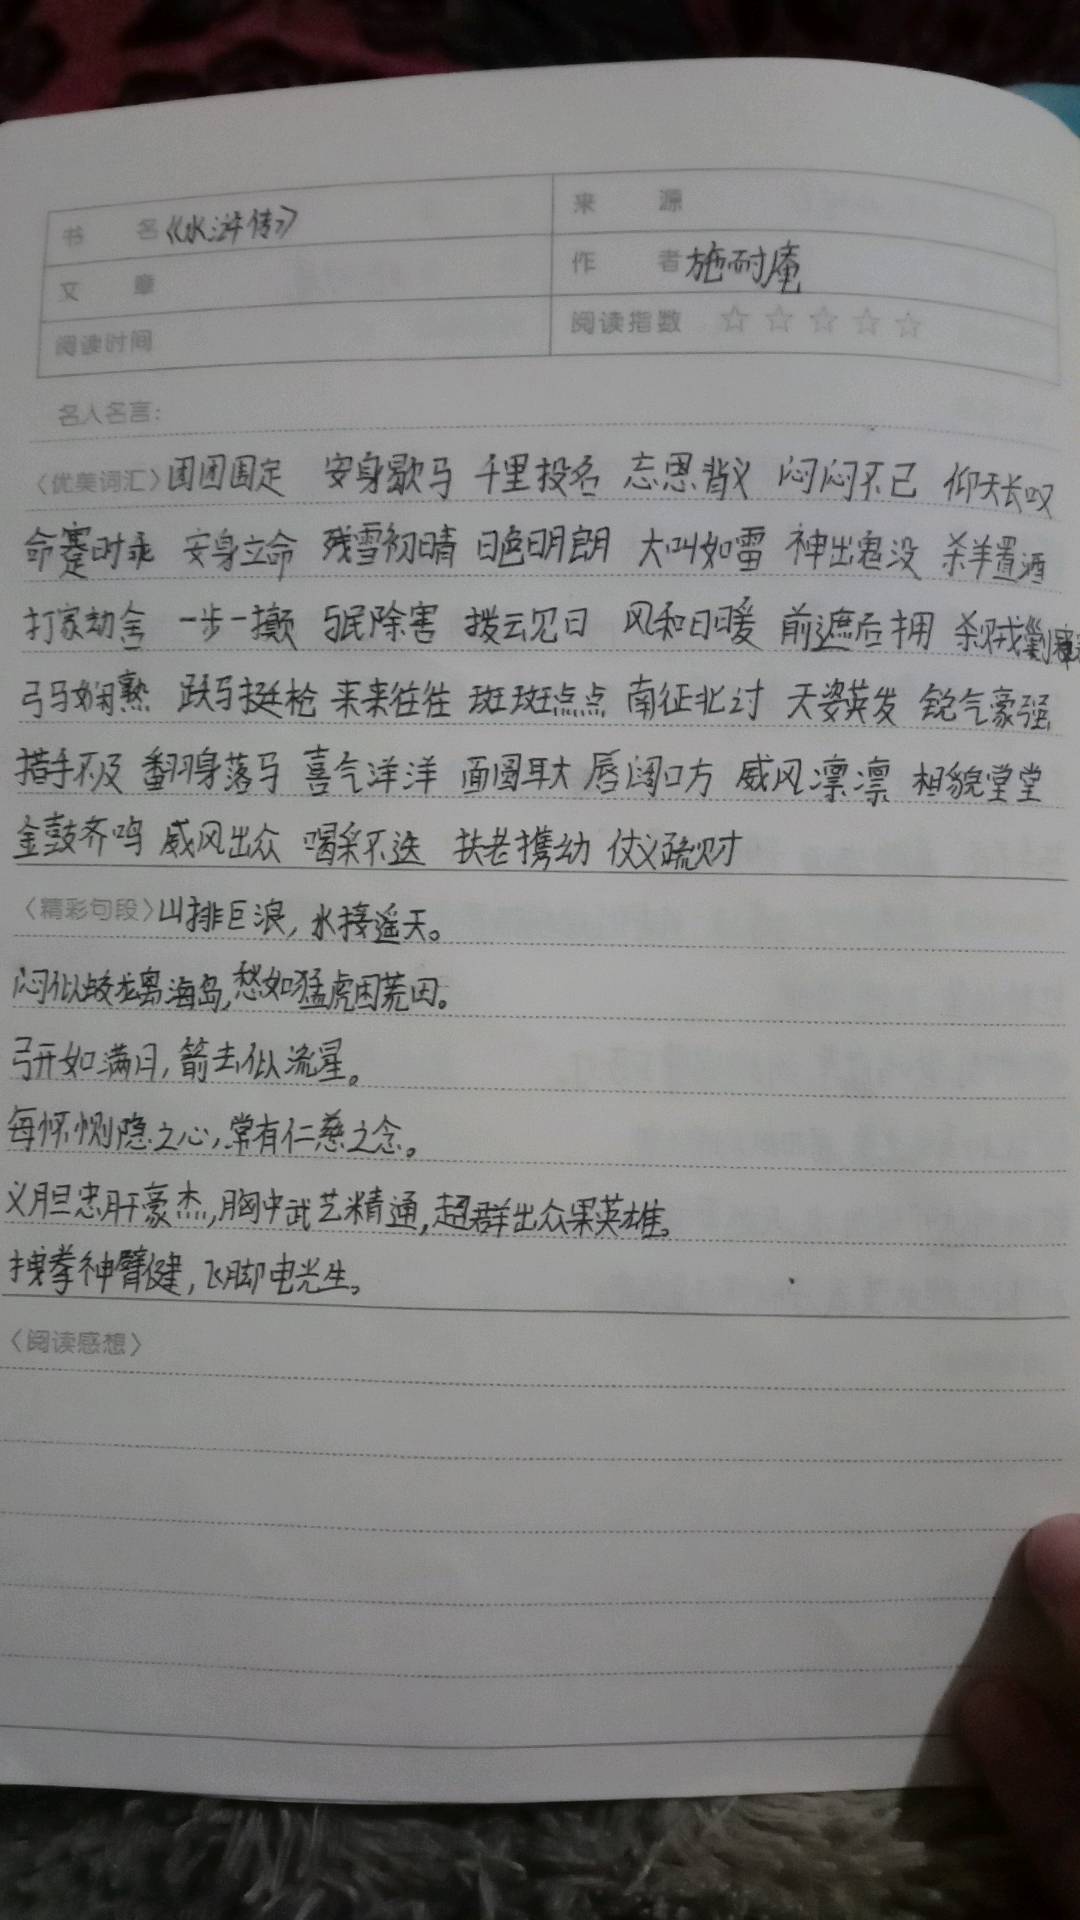 书 名《水浒传》 来 源
文 章 作 者 施耐庵
阅读时间 阅读指数 ☆☆☆☆☆
名人名言:
〈优美词汇〉团团围定 安身歇马 千里投名 忘恩背义 闷闷不已 仰天长叹
命蹇时乖 安身立命 残雪初晴 日色明朗 大叫如雷 神出鬼没 杀羊置酒
打家劫舍 一步一攧 与民除害 拨云见日 风和日暖 前遮后拥 杀贼剿寇
弓马娴熟 跃马挺枪 来来往往 斑斑点点 南征北讨 天姿英发 锐气豪强
措手不及 翻身落马 喜气洋洋 面圆耳大 唇阔口方 威风凛凛 相貌堂堂
金鼓齐鸣 威风出众 喝采不迭 扶老携幼 仗义疏财
〈精彩句段〉山排巨浪,水接遥天。
闷似蛟龙离海岛,愁如猛虎困荒田。
弓开如满月,箭去似流星。
每怀恻隐之心,常有仁慈之念。
义胆忠肝豪杰,胸中武艺精通,超群出众果英雄。
拽拳神臂健,飞脚电光生。
〈阅读感想〉